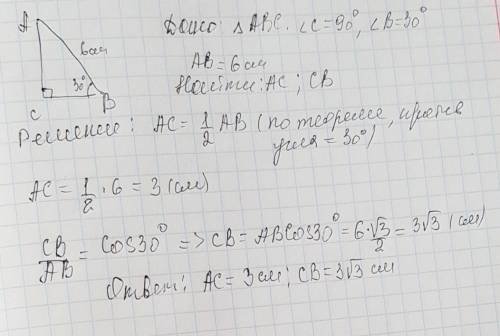 A
6см
30°
C
B
Дано △ABC. ∠C=90°, ∠B=30°
AB=6см
Найти: AC; CB
Решение: AC = 1/2 AB (по теореме, против
угла = 30°)
AC = 1/2 · 6 = 3 (см)
CB/AB = cos30° => CB = ABcos30° = 6·√3/2 = 3√3 (см)
Ответ: AC = 3см; CB = 3√3 см